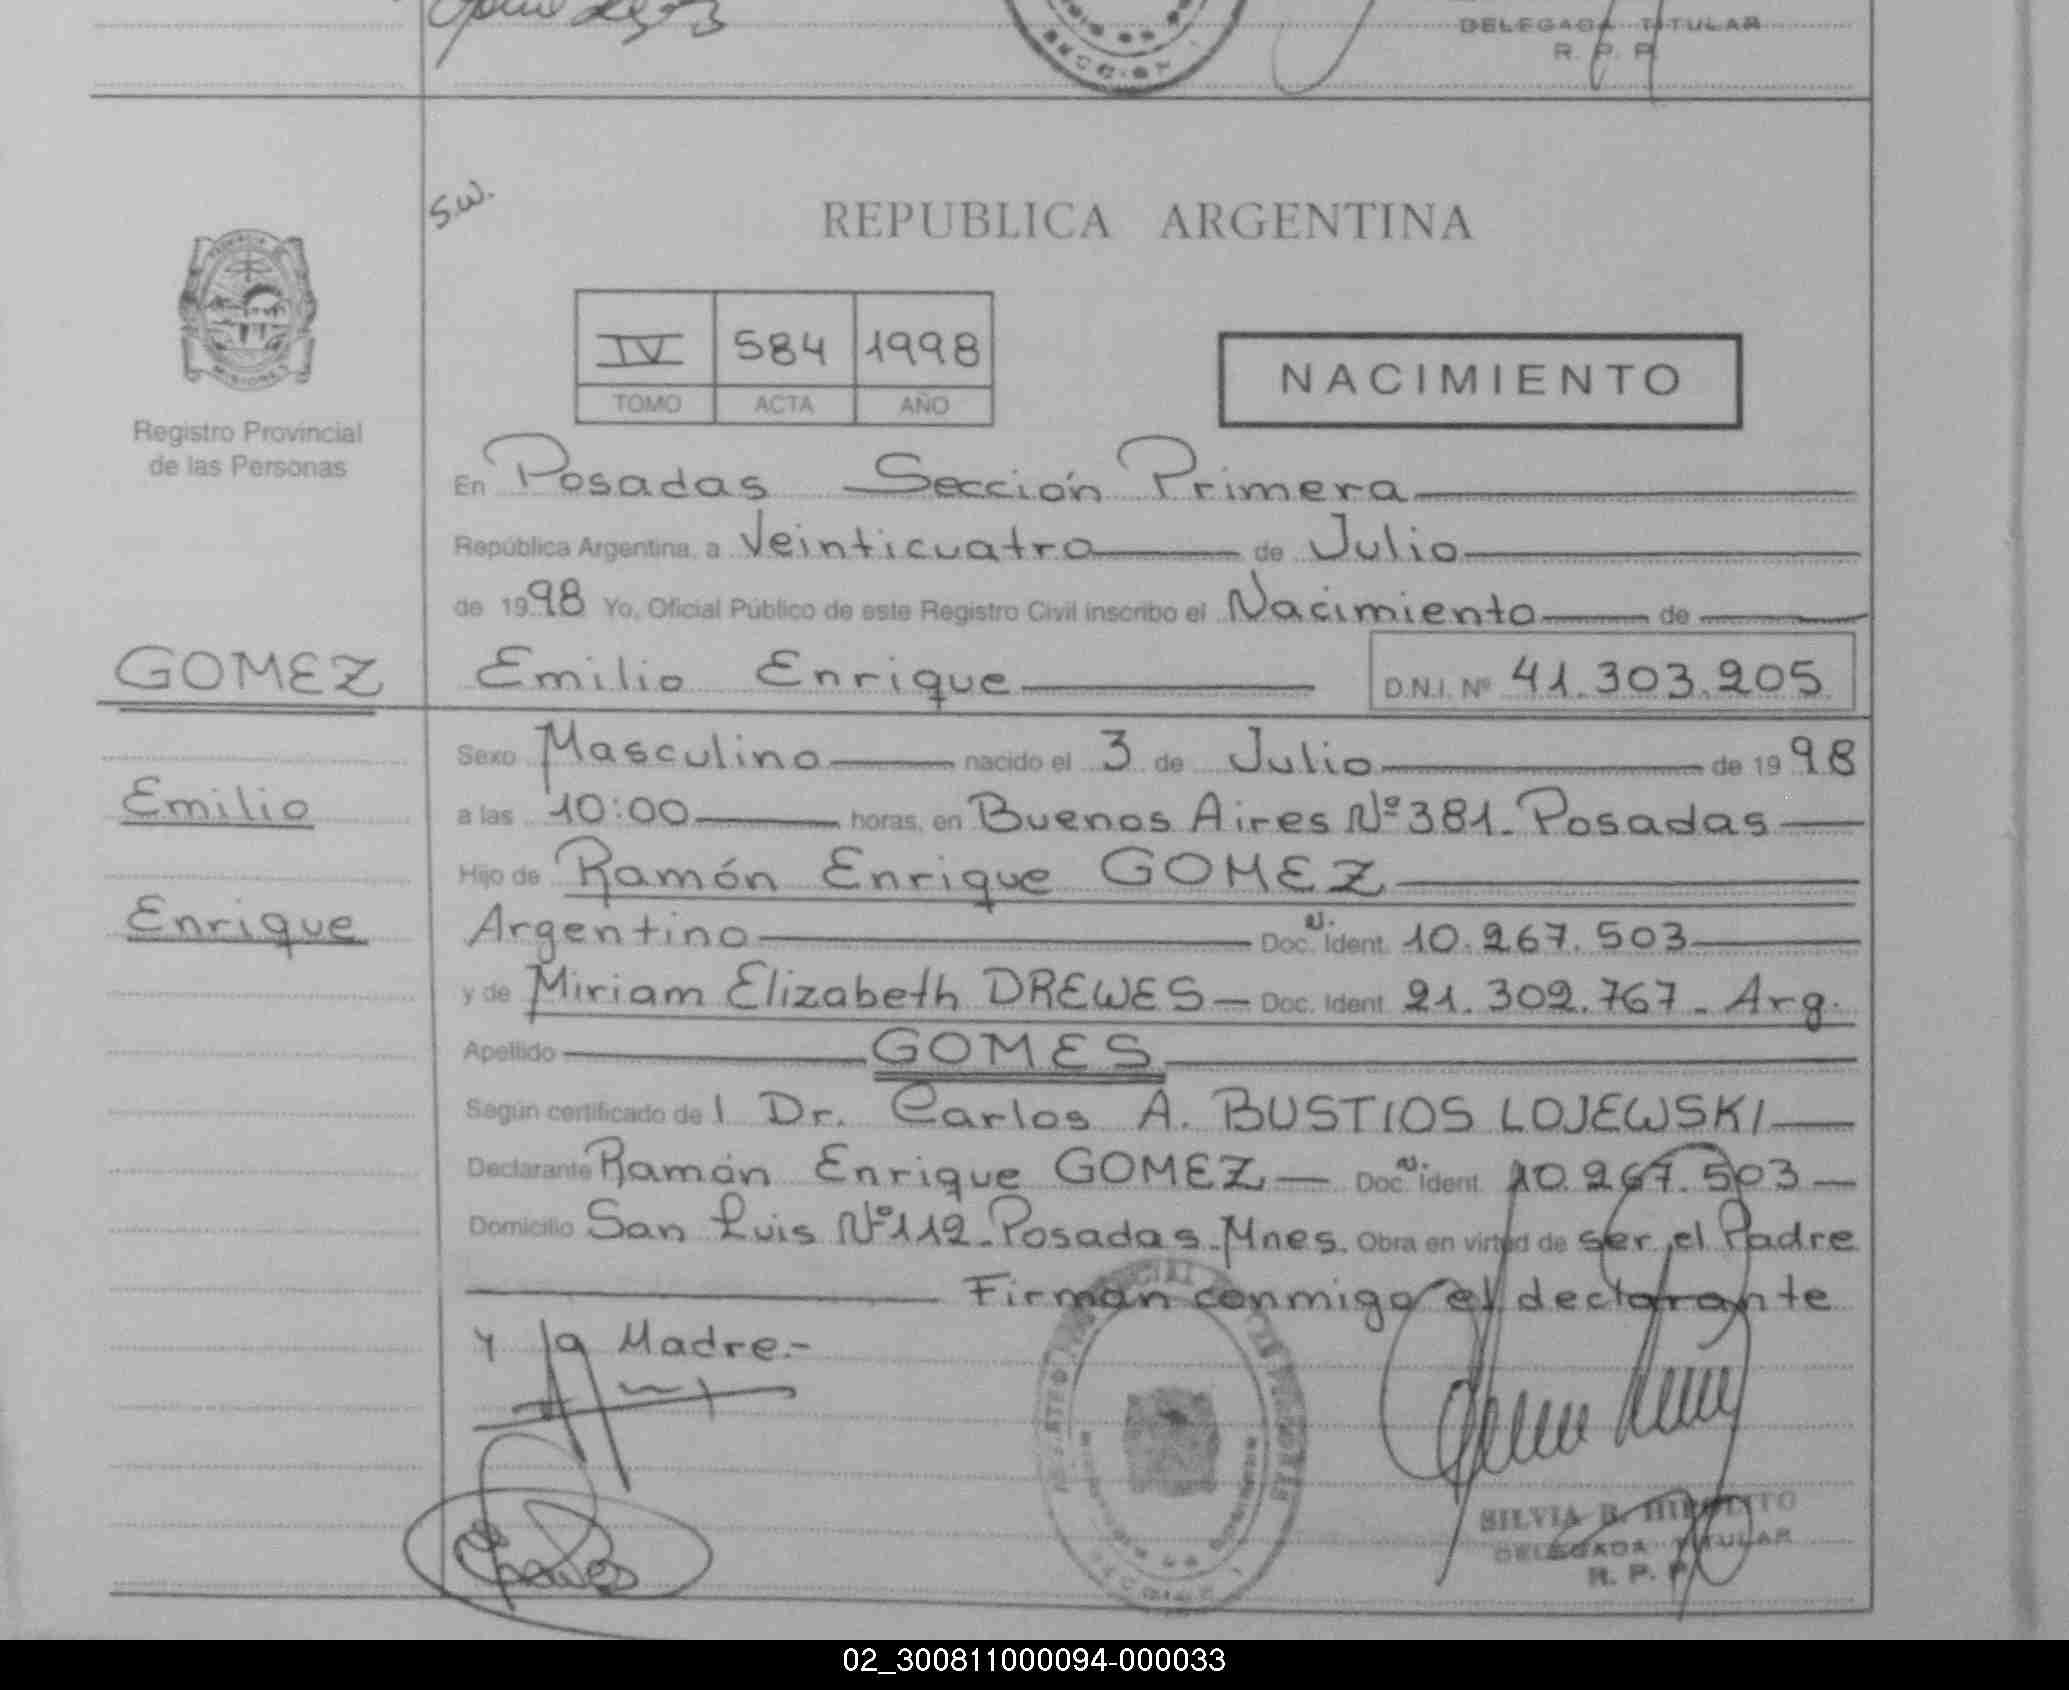 DELEGADA TITULAR
R. P. P.
S.W.
REPUBLICA ARGENTINA
IV 584 1998
TOMO ACTA AÑO
NACIMIENTO
MISIONES
Registro Provincial
de las Personas
En Posadas Sección Primera
República Argentina, a Veinticuatro de Julio
de 1998 Yo, Oficial Público de este Registro Civil inscribo el Nacimiento de
GOMEZ Emilio Enrique D.N.I. Nº 41.303.205
Sexo Masculino nacido el 3 de Julio de 1998
Emilio
a las 10:00 horas, en Buenos Aires Nº 381. Posadas
Hijo de Ramón Enrique GOMEZ
Enrique
Argentino Doc. N. Ident. 10.267.503
y de Miriam Elizabeth DREWES Doc. Ident. 21.302.767 - Arg.
Apellido GOMES
Según certificado del Dr. Carlos A. BUSTIOS LOJEWSKI
Declarante Ramón Enrique GOMEZ Doc. N. Ident. 10.267.503
Domicilio San Luis Nº 112 - Posadas - Mnes. Obra en virtud de ser el Padre
Firman conmigo el declarante
y la Madre.-
SILVIA B. HIPOLITO
DELEGADA TITULAR
R. P. P.
02_300811000094-000033